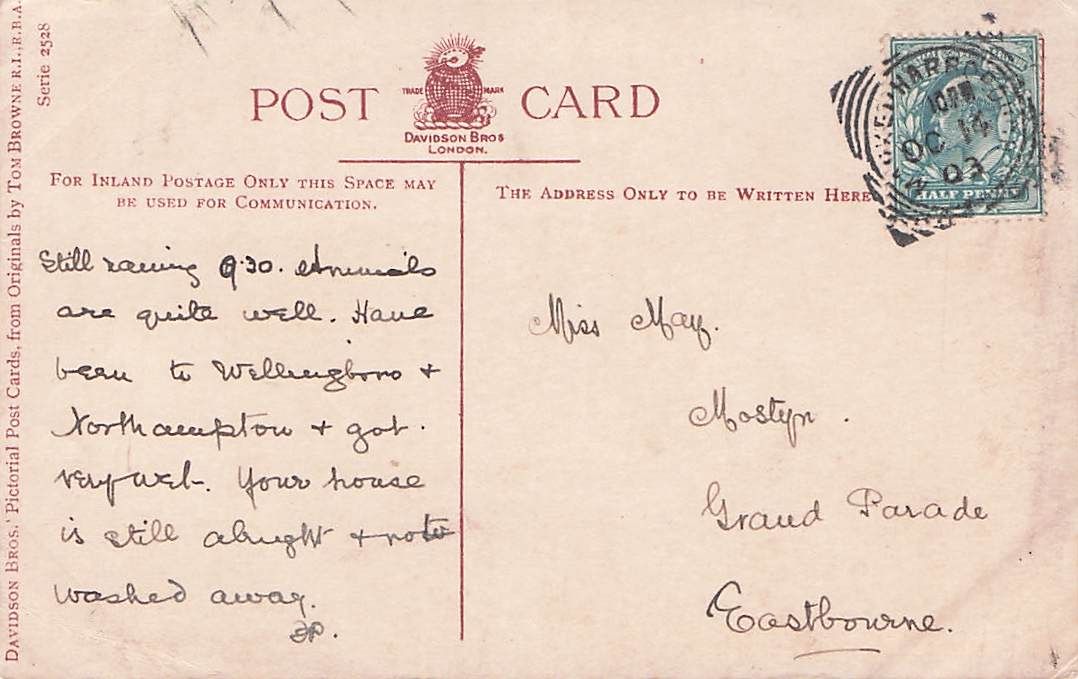 POST CARD
TRADE MARK
DAVIDSON BROS
LONDON.
DAVIDSON BROS.' Pictorial Post Cards, from Originals by TOM BROWNE R.I., R.B.A.
Serie 2528
FOR INLAND POSTAGE ONLY THIS SPACE MAY
BE USED FOR COMMUNICATION.
THE ADDRESS ONLY TO BE WRITTEN HERE
OC 14
03
HALF PENNY
Still raining 9.30. Animals
are quite well. Have
been to Wellingboro +
Northampton + got
very wet. Your house
is still alright + not
washed away.
Miss May.
Mostyn.
Grand Parade
Eastbourne.